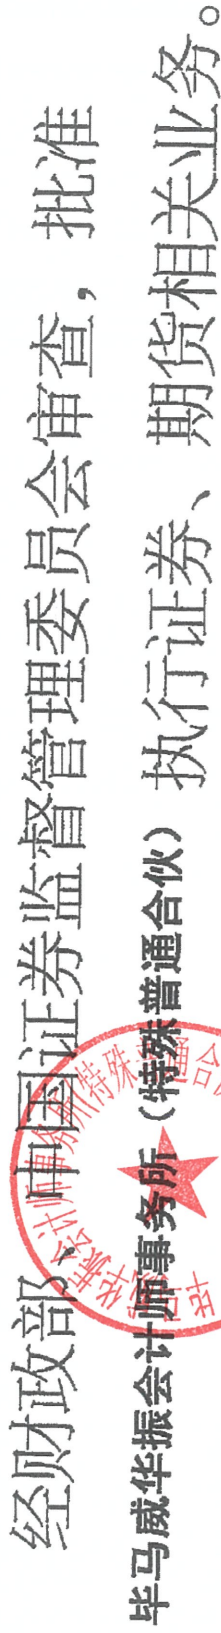 经财政部、中国证券监督管理委员会审查，批准
毕马威华振会计师事务所（特殊普通合伙）执行证券、期货相关业务。